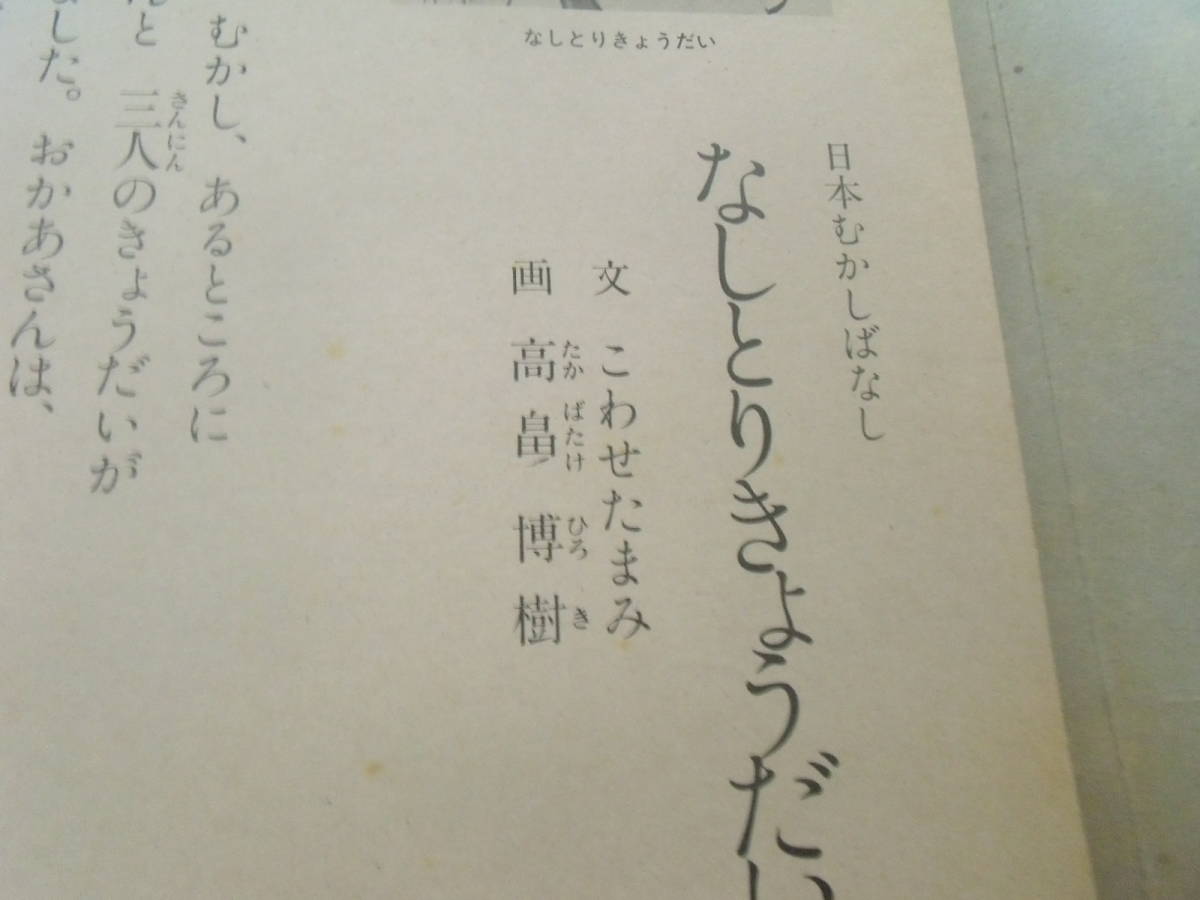 なしとりきょうだい
日本むかしばなし
なしとりきょうだい
文 こわせたまみ
画 高畠博樹
たかばたけひろき
むかし、あるところに
と 三人のきょうだいが
さんにん
した。おかあさんは、